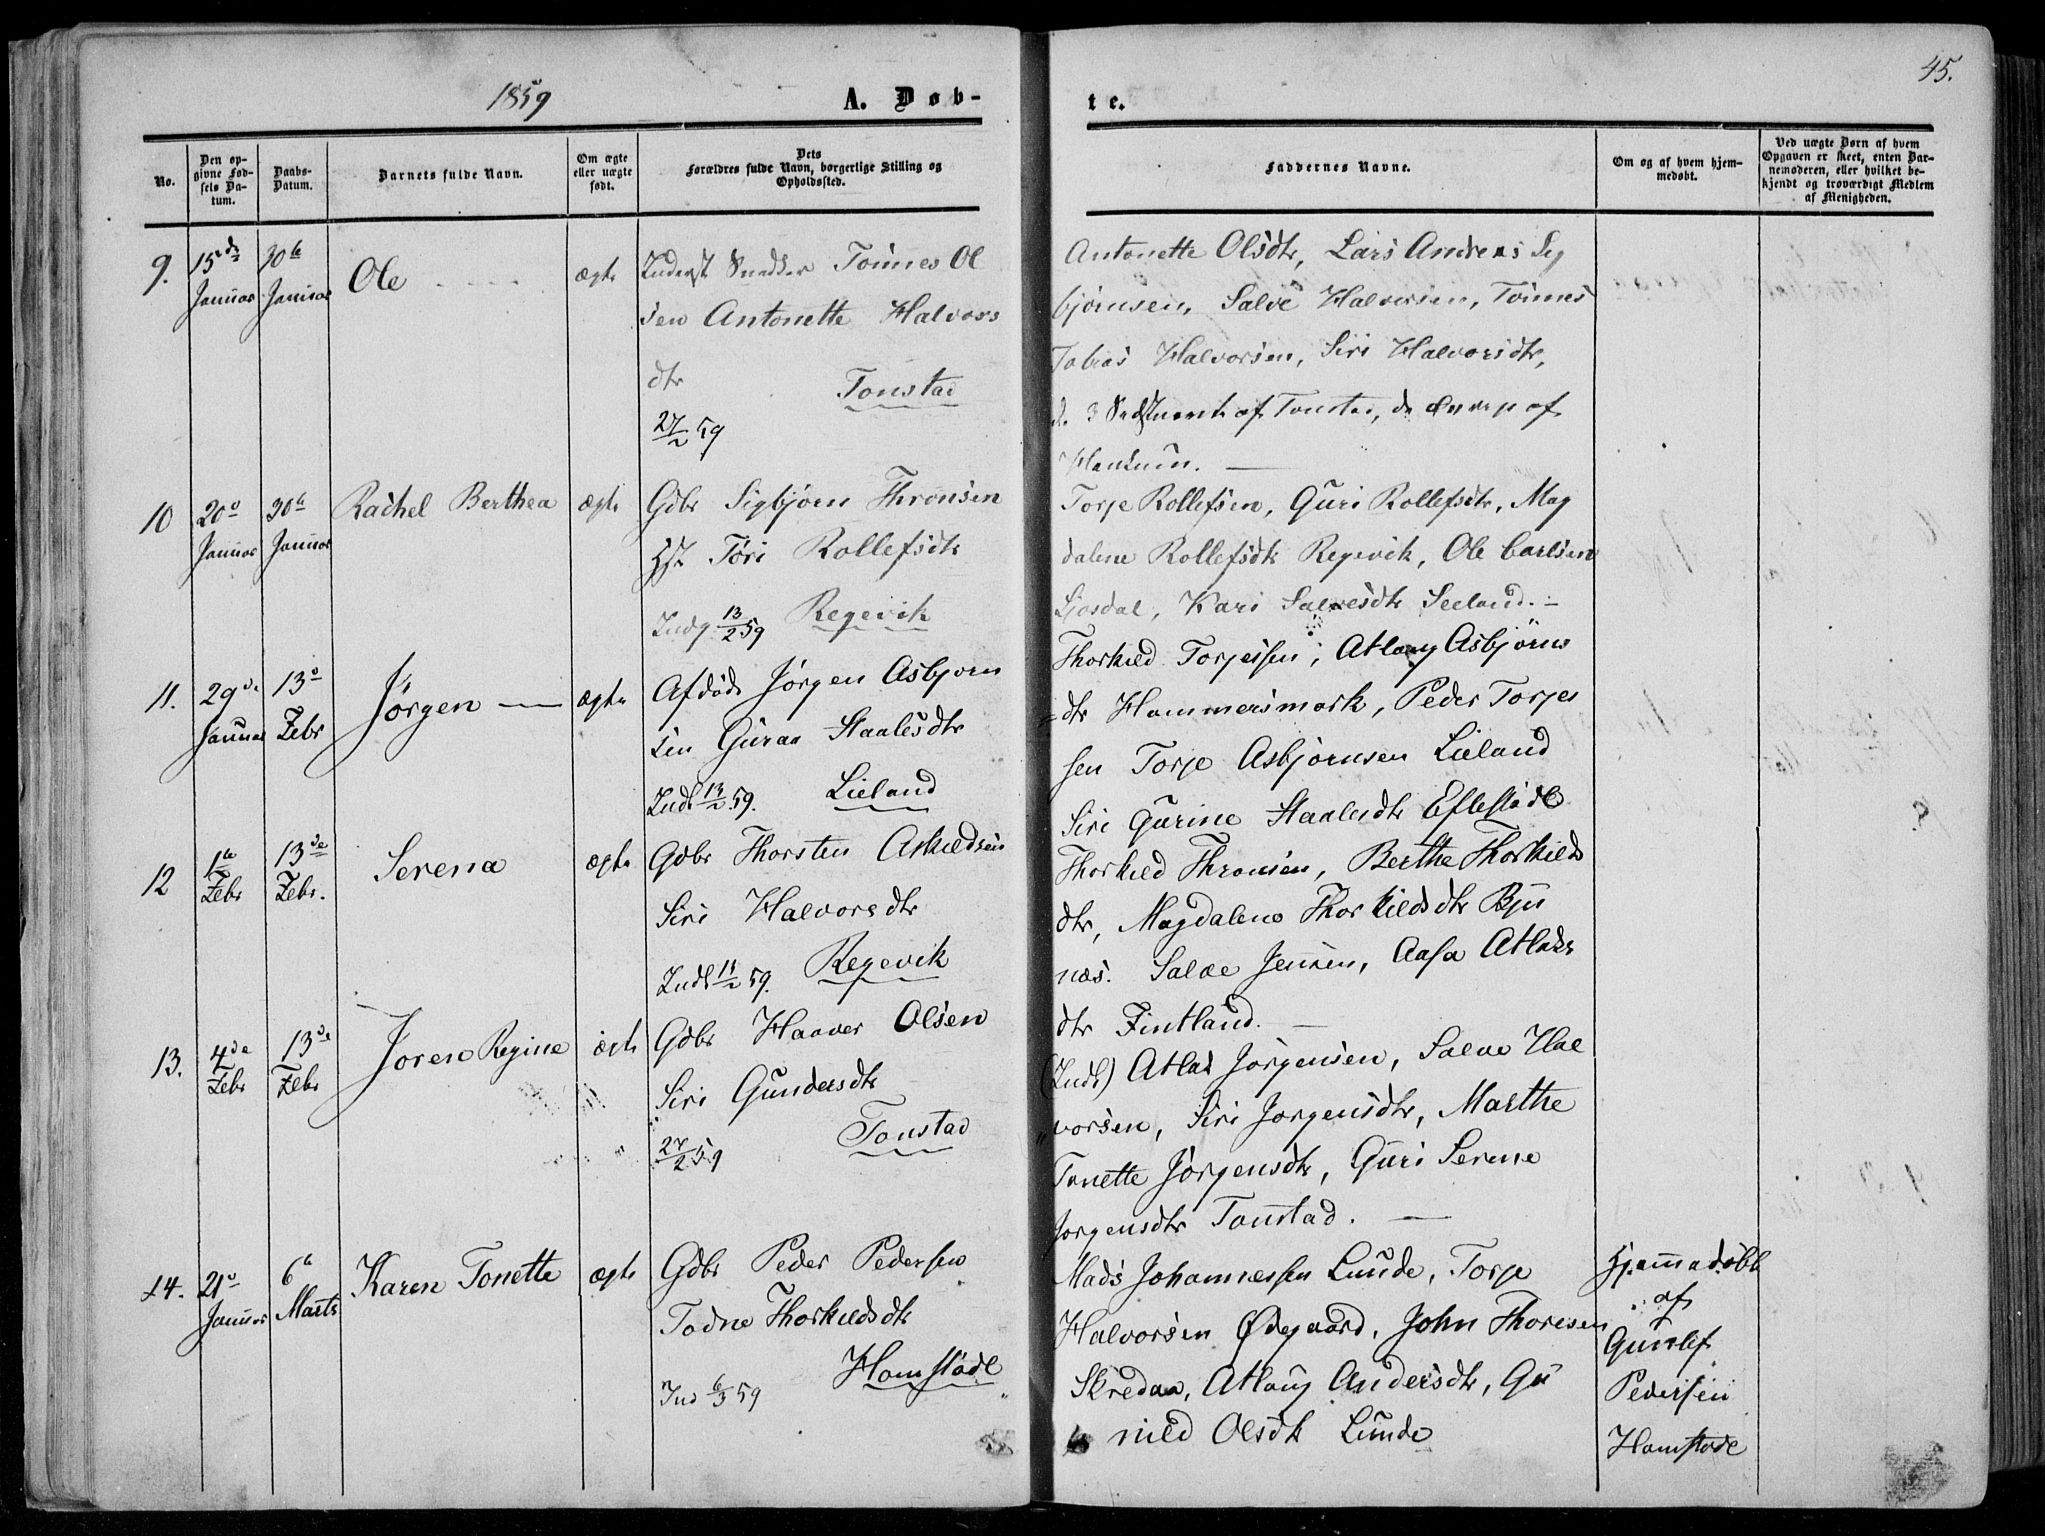 1859
A. Døb-
te.
45.
No.
Den op-
givne Fød-
sels Da-
tum.
Daabs-
Datum.
Barnets fulde Navn.
Om ægte
eller uægte
født.
Dets
Forældres fulde Navn, borgerlige Stilling og
Opholdssted.
Faddernes Navne.
Om og af hvem hjem-
medøbt.
Ved uægte Børn af hvem
Opgaven er skeet, enten Bar-
nemoderen, eller hvilket be-
kjendt og troværdigt Medlem
af Menigheden.
9.
15de
Januar
30te
Januar
Ole
ægte
Inderst Snedker Tønnes Ol
sen Antonette Halvors
dtr
Tonstad
27/2 59
Antonette Olsdtr, Lars Andreas Sig
bjørnsen, Salve Halvorsen, Tønnes
Tobias Halvorsen, Siri Halvorsdtr,
de 3 af Tonstad, de af
10
20de
Januar
30te
Januar
Rachel Berthea
ægte
Gdbr Sigbjørn Thronsen
Hst. Tøri Rollefsdtr
Indg 13/2 59 Regevik
Torje Rollefsen, Guri Rollefsdtr, Mag
dalene Rollefsdtr Regevik, Ole Carlsen
Ljosdal, Kari Salvesdtr Seeland. -
11.
29de
Januar
13de
Febr
Jørgen
ægte
Afdøde Jørgen Asbjørn
sen Guraa Staalesdtr
Indl 13/2 59. Lieland
Thorkild Torjessen, Atlaug Asbjørns
dtr Hammersmark, Peder Torjes
sen Torje Asbjørnsen Lieland
Siri Gurine Staalesdtr Eftestøl
12
1te
Febr
13de
Febr.
Serena
ægte
Gdbr Thorsten Askildsen
Siri Halvorsdtr
Indl 11/2 59. Regevik
Thorkild Thronsen, Berthe Thorkilds
dtr, Magdalene Thorkildsdtr Bju
næs. Salve Jensen, Aasa Atlaks
dtr Fintland.
13.
4de
Febr
13de
Febr
Joren Regine
ægte
Gdbr Haaver Olsen
Siri Gundersdtr
27/2 59 Tonstad
(Indl) Atlas Jørgensen, Salve Hal
vorsen, Siri Jørgensdtr, Marthe
Tonette Jørgensdtr, Guri Serene
Jørgensdtr Tonstad.
14.
21de
Januar
6te
Marts
Karen Tonette
ægte
Gdbr Peder Pedersen
Todne Thorkildsdtr
Ind 6/3 59 Homstøl
Mads Johannessen Lunde, Torje
Halvorsen Ødegaard, John Thoresen
Skredaa, Atlaug Andersdtr, Gu
nild Olsdtr Lunde
Hjemmedøbt
af
Gunlef
Pedersen
Homstøl